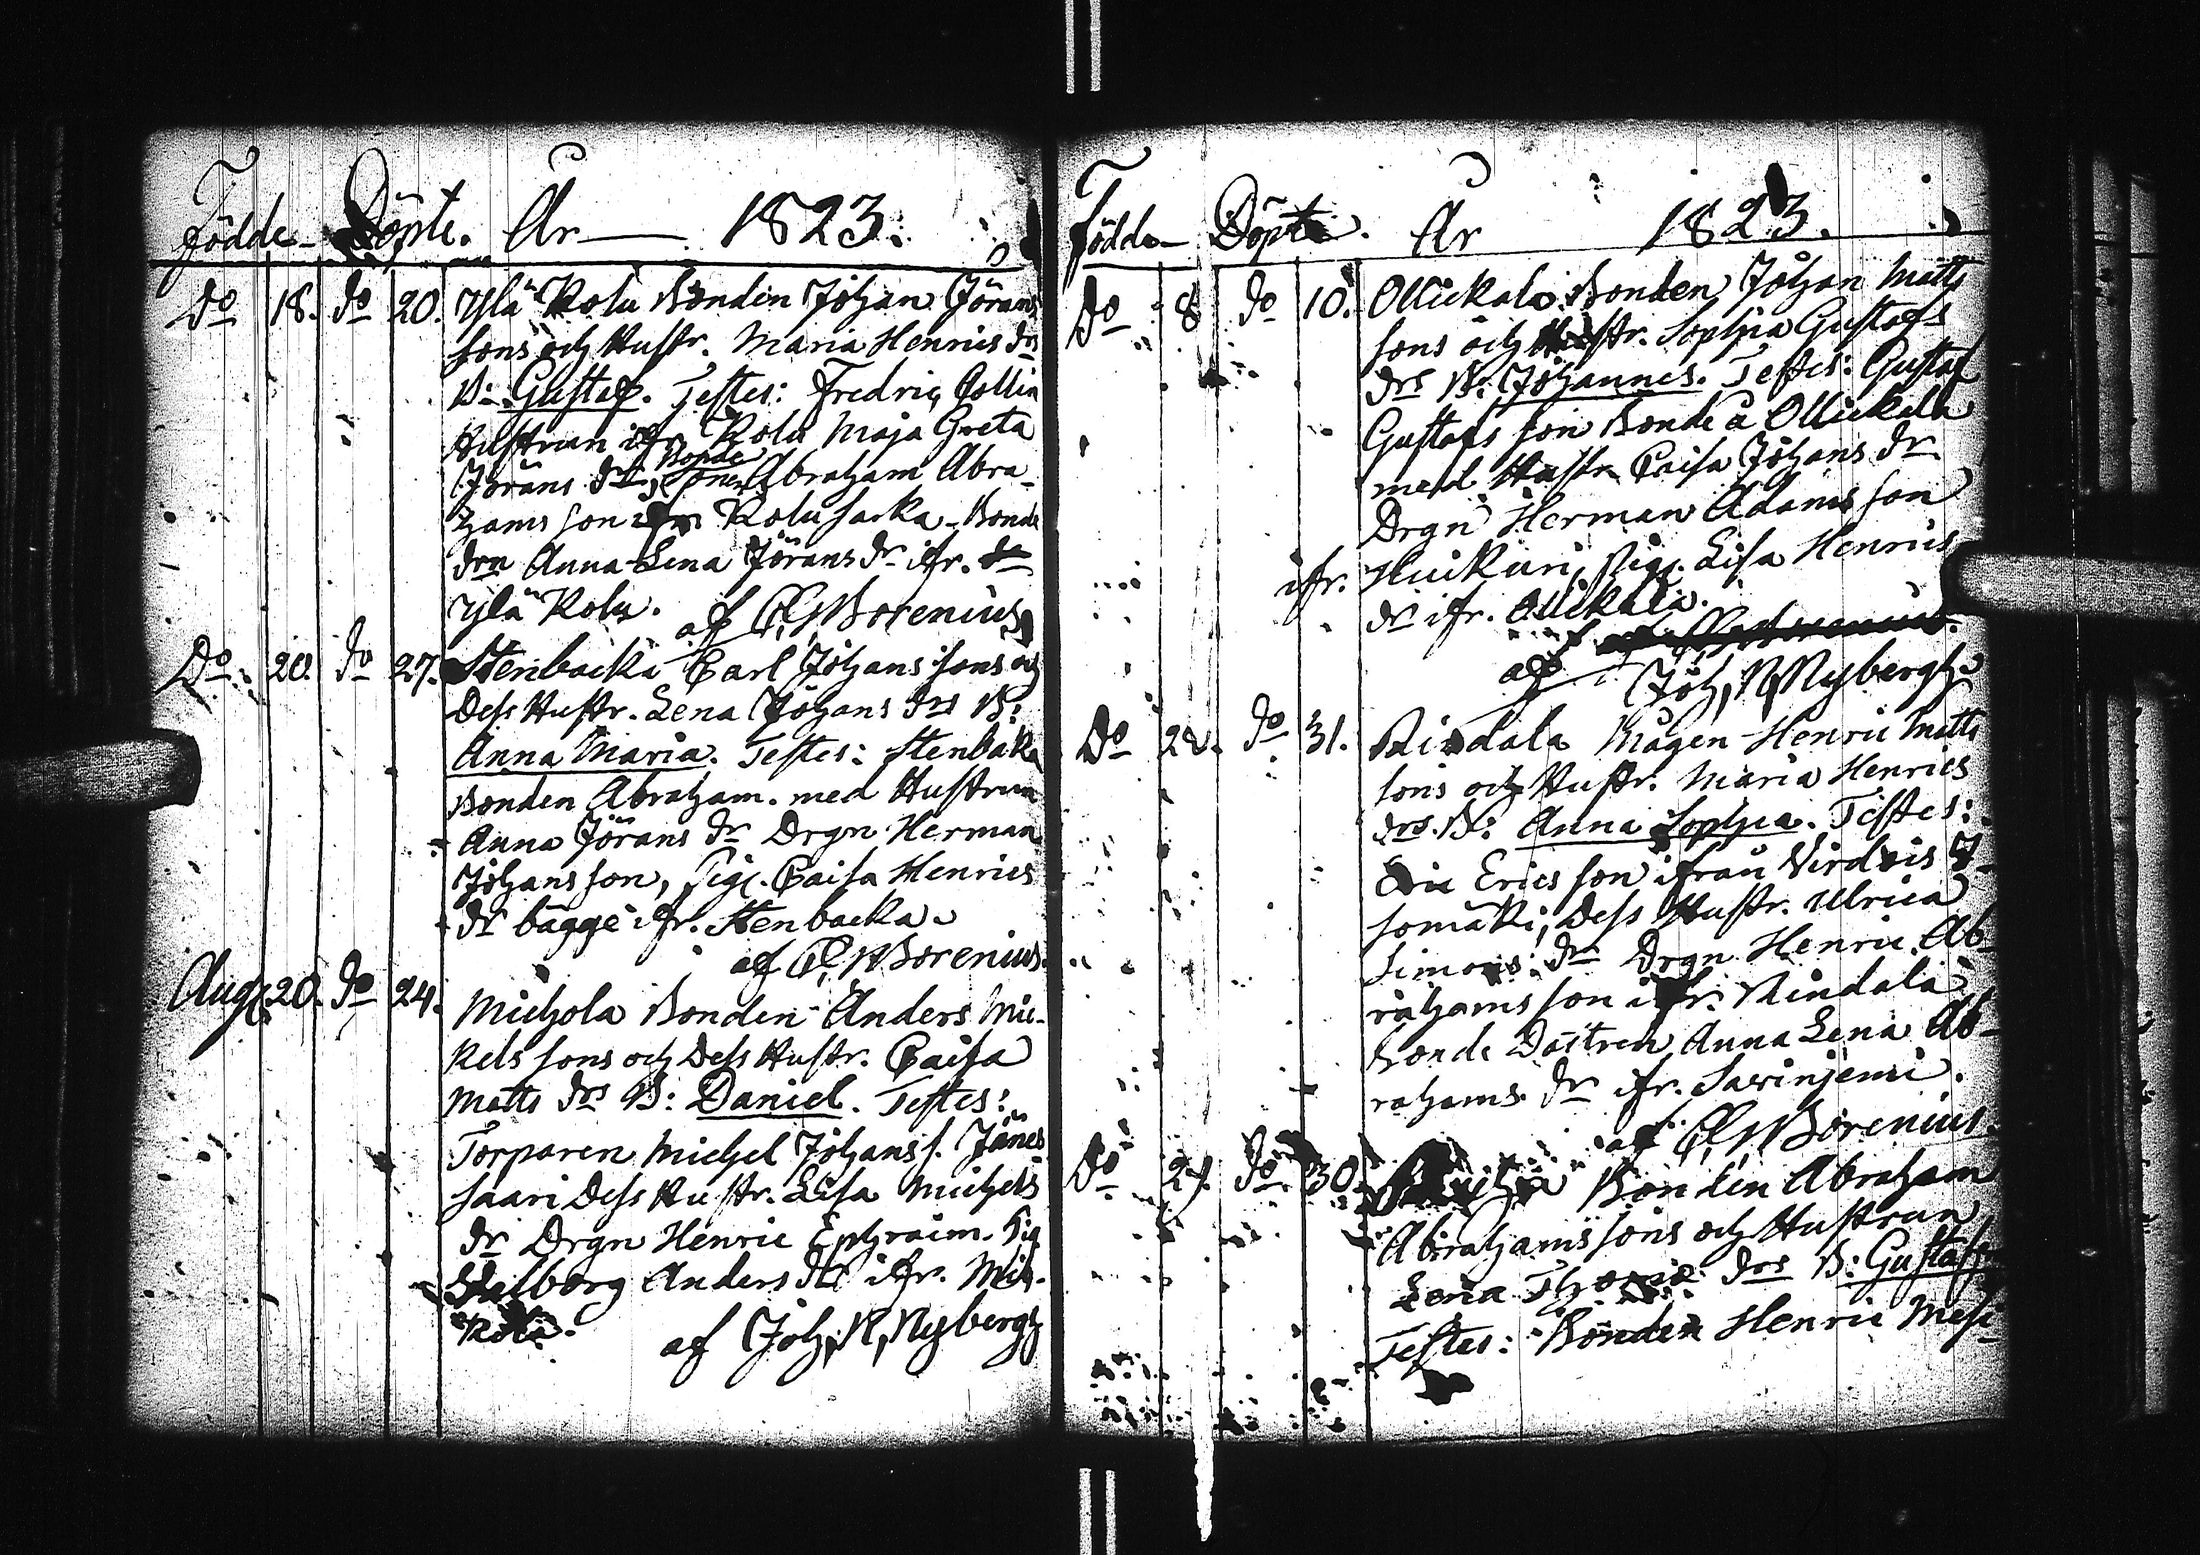 Födde Döpte. År 1823.
Do 18. do 20. Ylä Kolu Bonden Johan Jörans
sons och Hustr. Maria Henrics drs
B: Gustaf. Testes: Fredric Collin
Hustrun ifr. Kolu Maja Greta
Jörans dr, Bonde Sonen Abraham Abra-
hams son ifr. Kolu sarka - Bonde
drn Anna Lena Jörans dr ifr.
Ylä Kolu.
af C. G. Borenius
Do 20. do 27. Stenbacka Carl Johans sons och
Dess Hustr. Lena Johans drs B:
Anna Maria. Testes: Stenbaka
Bonden Abraham. med Hustrun
Anna Jörans dr Drgn Herman
Johans son, Pig. Caisa Henrics
dr bägge ifr. Stenbacka.
af C. G. Borenius.
Aug. 20. do 24. Michola Bonden Anders Mic-
kels sons och Dess Hustr. Caisa
Matts drs B: Daniel. Testes:
Torparen Michel Johans s. Jänes
saari Dess Hustr. Lisa Michels
dr Drgn Henric Ephraim. Pig
Walborg Anders dr ifr. Mic-
kola.
af Joh. N. Nybergh
Födde Döpte. År 1823.
Do 8 do 10. Ollickala Bonden Johan Matts
sons och Hustr. Sophia Gustafs
drs B: Johannes. Testes: Gustaf
Gustafs son Bonde å Ollickala
med Hustr. Caisa Johans dr
Drgn Herman Adams son
ifr. Huikuri, Pig. Lisa Henrics
dr ifr. Ollickala.
af Joh. N. Nybergh
Do 28. do 31. Rindala Mågen Henric Matts
sons och Hustr. Maria Henrics
drs. B: Anna Sophia. Testes:
Eric Erics son ifrån Virdois I-
somäki, Dess Hustr. Ulrica
Simons dr Drgn Henric Ab-
rahams son ifr. Rindala
bonde Dottren Anna Lena Ab-
rahams dr ifr. Savinjemi.
af C. G. Borenius.
Do 27. do 30. Bonden Abraham
Abrahams sons och Hustrun
Lena drs B: Gustaf
Testes: Bonden Henric Mesi-